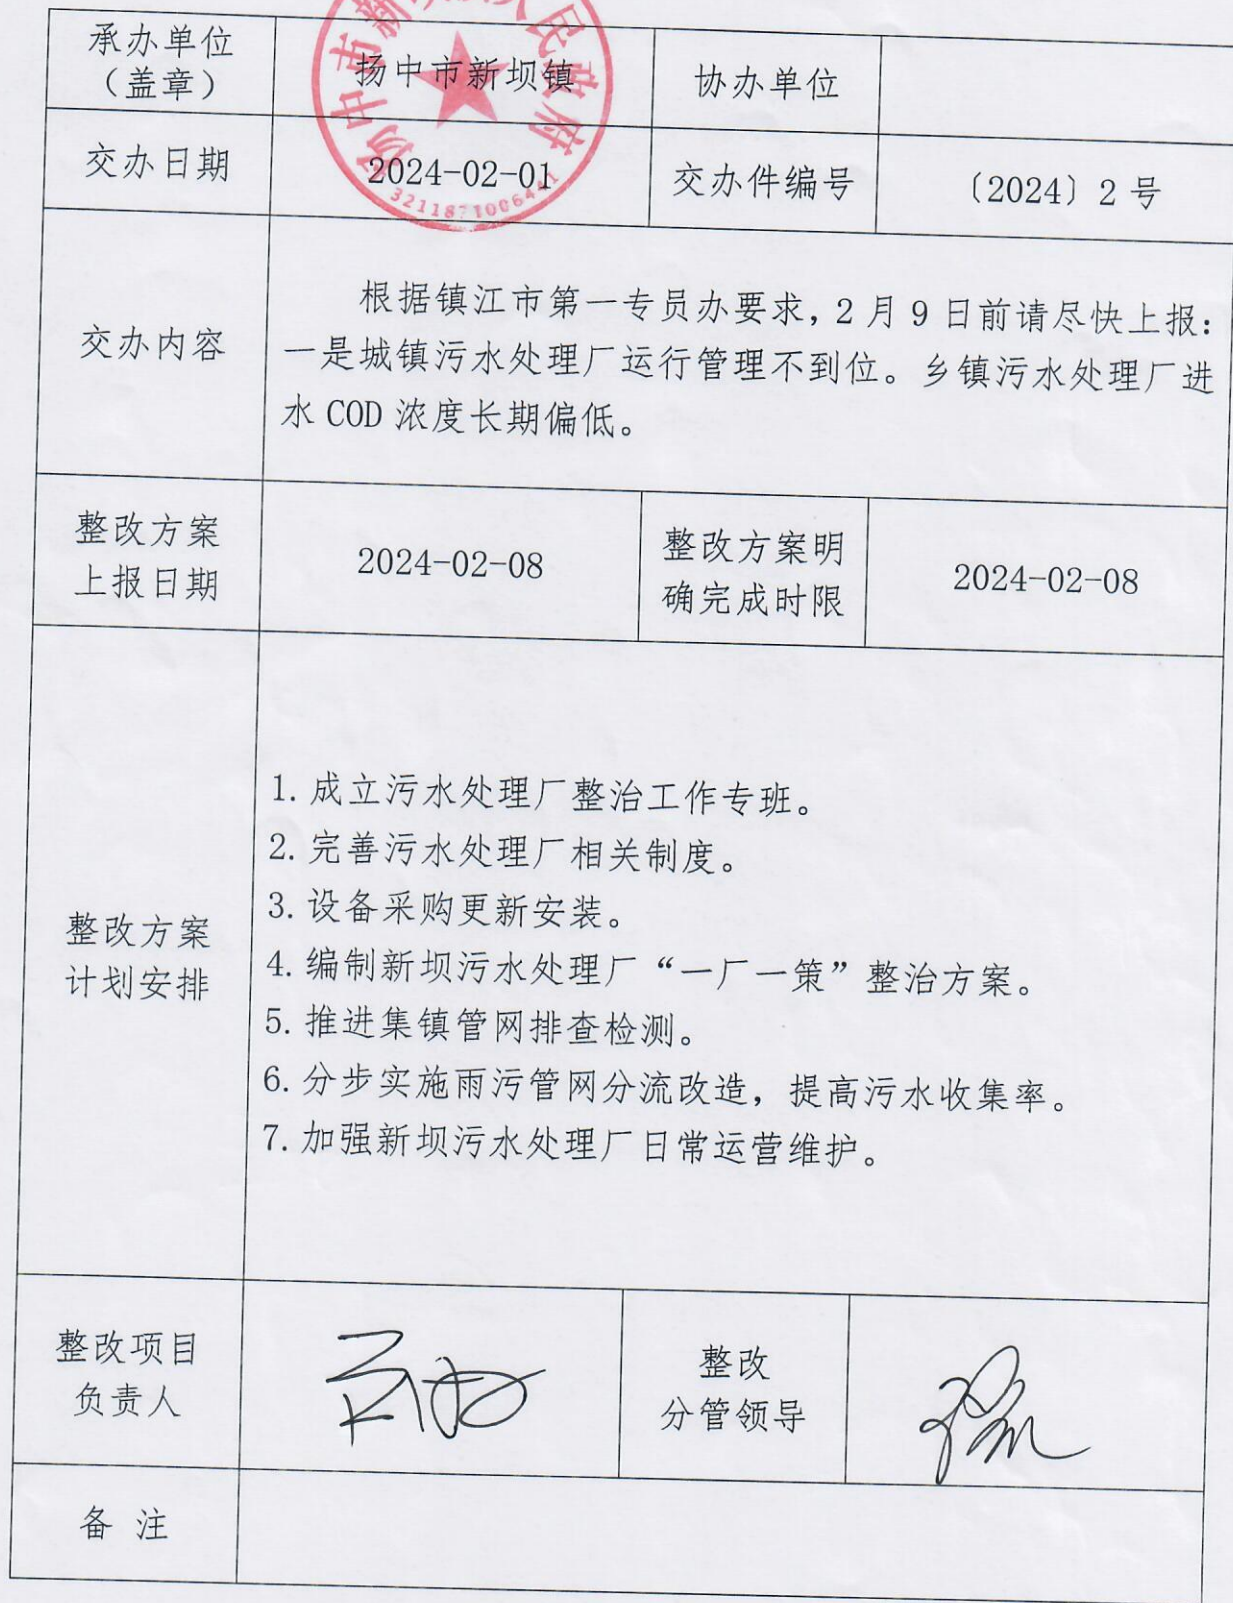 承办单位
（盖章）
扬中市新坝镇
协办单位
交办日期
2024-02-01
交办件编号
〔2024〕2号
交办内容
根据镇江市第一专员办要求，2月9日前请尽快上报：
一是城镇污水处理厂运行管理不到位。乡镇污水处理厂进
水COD浓度长期偏低。
整改方案
上报日期
2024-02-08
整改方案明
确完成时限
2024-02-08
整改方案
计划安排
1.成立污水处理厂整治工作专班。
2.完善污水处理厂相关制度。
3.设备采购更新安装。
4.编制新坝污水处理厂“一厂一策”整治方案。
5.推进集镇管网排查检测。
6.分步实施雨污管网分流改造，提高污水收集率。
7.加强新坝污水处理厂日常运营维护。
整改项目
负责人
整改
分管领导
备 注